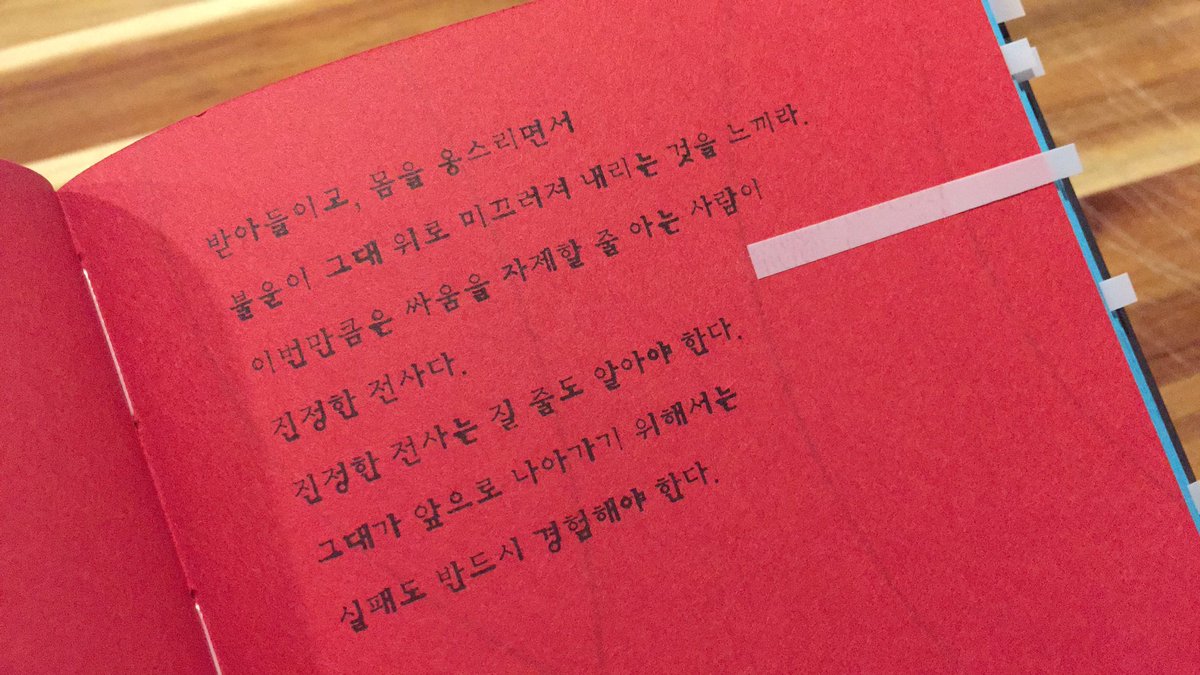 받아들이고, 몸을 웅스리면서
불운이 그대 위로 미끄러져 내리는 것을 느끼라.
이번만큼은 싸움을 자제할 줄 아는 사람이
진정한 전사다.
진정한 전사는 질 줄도 알아야 한다.
그대가 앞으로 나아가기 위해서는
실패도 반드시 경험해야 한다.